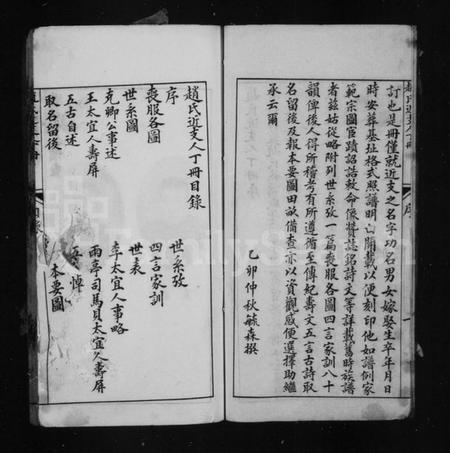 訂也是冊僅就近支之名字功名男女嫁娶生卒年月日
時安葬基址格式照譜明白開載以便刻印他如譜例家
範宗圖官蹟詔誥敕命像贊誌銘詩文等詳載舊時族譜
者茲姑從略附列世系攷一篇喪服各圖四言家訓八十
韻俾後人得所稽考有所遵循至傳紀壽文五言古詩取
名留後及報本要圖田畝備查亦以資觀感便選擇助繼
承云爾
乙卯仲秋毓森撰
序
一
趙氏近支人丁冊目錄
序
世系攷
喪服各圖
四言家訓
世系圖
世表
克卿公事述
李太宜人事略
王太宜人壽屏
雨亭司馬貝太宜人壽屏
五古自述
悼
取名留後
本要圖